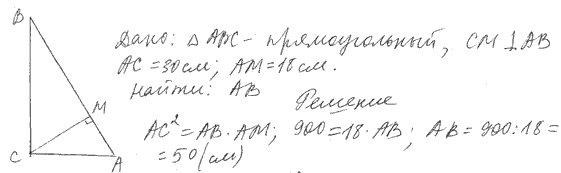 B
Дано: △ ABC - прямоугольный, CM ⊥ AB
AC = 30 см; AM = 18 см.
Найти: AB
M
Решение
AC² = AB · AM; 900 = 18 · AB; AB = 900 : 18 =
= 50 (см)
C
A